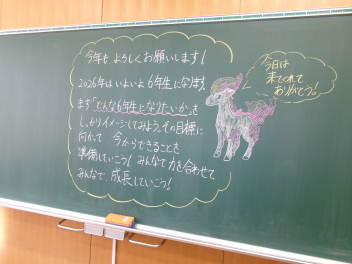 今年も よろしくお願いします!
2026年はいよいよ6年生になります。
まず「どんな6年生になりたいか」を
しっかりイメージしてみよう。その目標に
向かって 今からできることを
準備していこう! みんなで力を合わせて
みんなで 成長していこう!
今日は
来てくれて
ありがとう!